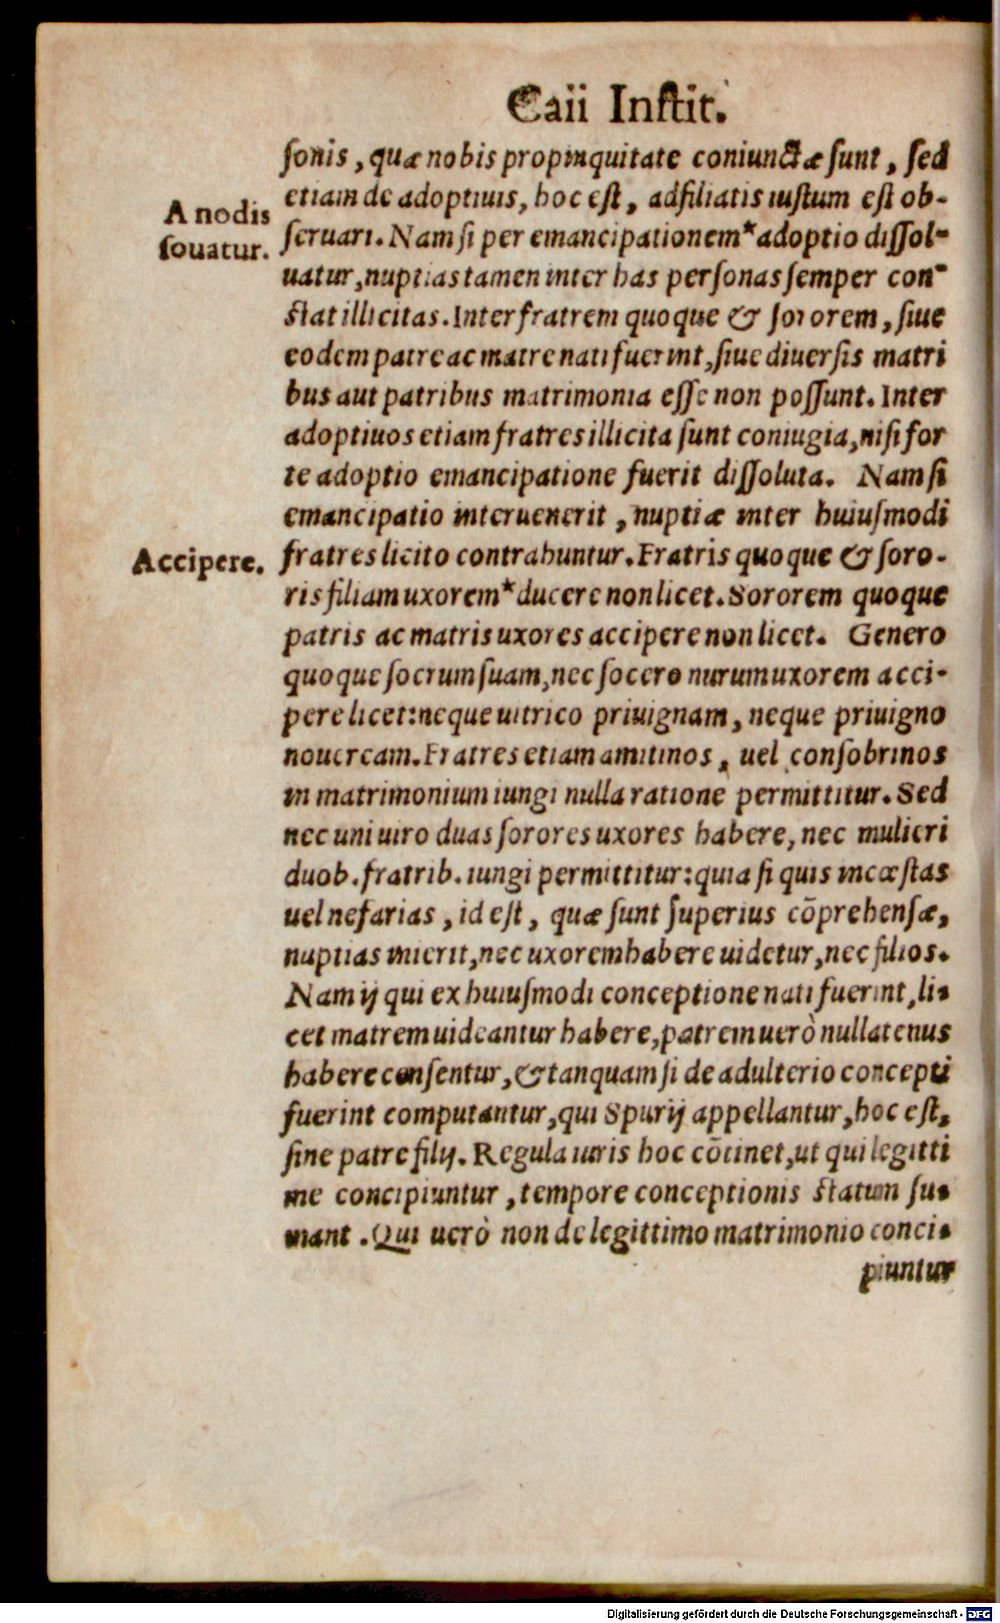 Caii Instit.
sonis, quæ nobis propinquitate coniunctæ sunt, sed
etiam de adoptiuis, hoc est, adfiliatis iustum est ob-
A nodis
souatur.
seruari. Nam si per emancipationem* adoptio dissol-
uatur, nuptias tamen inter has personas semper con-
stat illicitas. Inter fratrem quoque & sororem, siue
eodem patre ac matre nati fuerint, siue diuersis matri
bus aut patribus matrimonia esse non possunt. Inter
adoptiuos etiam fratres illicita sunt coniugia, nisi for
te adoptio emancipatione fuerit dissoluta. Nam si
emancipatio interuenerit, nuptiæ inter huiusmodi
Accipere.
fratres licito contrahuntur. Fratris quoque & soro-
ris filiam uxorem* ducere non licet. Sororem quoque
patris ac matris uxores accipere non licet. Genero
quoque socrum suam, nec socero nurum uxorem acci-
pere licet: neque uitrico priuignam, neque priuigno
nouercam. Fratres etiam amitinos, uel consobrinos
in matrimonium iungi nulla ratione permittitur. Sed
nec uni uiro duas sorores uxores habere, nec mulieri
duob. fratrib. iungi permittitur: quia si quis incœstas
uel nefarias, id est, quæ sunt superius cõprehensæ,
nuptias inierit, nec uxorem habere uidetur, nec filios.
Nam ij qui ex huiusmodi conceptione nati fuerint, li-
cet matrem uideantur habere, patrem uerò nullatenus
habere censentur, & tanquam si de adulterio concepti
fuerint computantur, qui Spurij appellantur, hoc est,
sine patre filij. Regula iuris hoc cõtinet, ut qui legitti
me concipiuntur, tempore conceptionis statum su-
mant. Qui uerò non de legittimo matrimonio conci-
piuntur
Digitalisierung gefördert durch die Deutsche Forschungsgemeinschaft - DFG